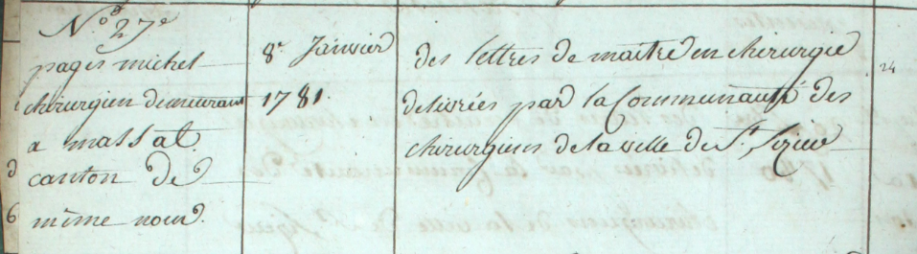 N.° 27.e
pages michel
chirurgien demeurant
a massat
canton de
même nom.
8.e Janvier
1781.
des lettres de maitre en chirurgie
delivrées par la Communauté des
chirurgiens de la ville de S.t Lizier
24